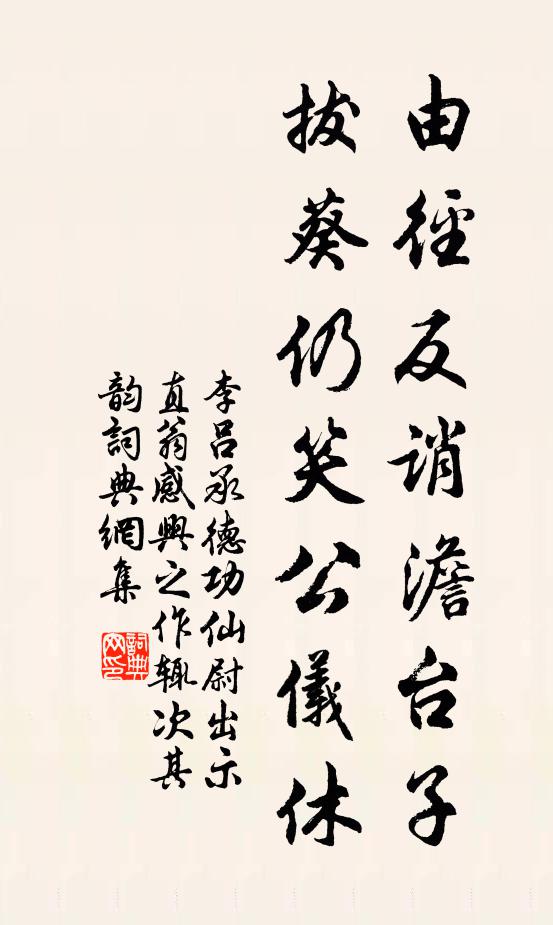 由径反誚澹台子
拔葵仍笑公儀休
李呂承德功仙尉出示
直翁感興之作辄次其
韵詞典網集
詞典网印